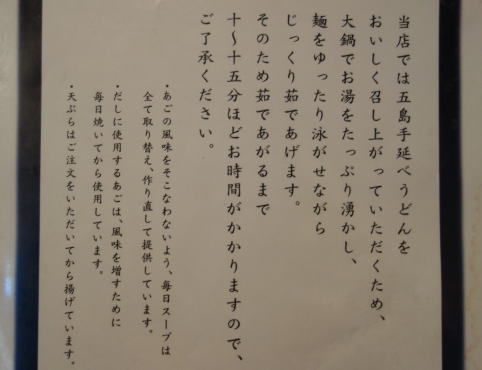 当店では五島手延べうどんを
おいしく召し上がっていただくため、
大鍋でお湯をたっぷり湧かし、
麺をゆったり泳がせながら
じっくり茹であげます。
そのため茹であがるまで
十〜十五分ほどお時間がかかりますので、
ご了承ください。
・あごの風味をそこなわないよう、毎日スープは
全て取り替え、作り直して提供しています。
・だしに使用するあごは、風味を増すために
毎日焼いてから使用しています。
・天ぷらはご注文をいただいてから揚げています。